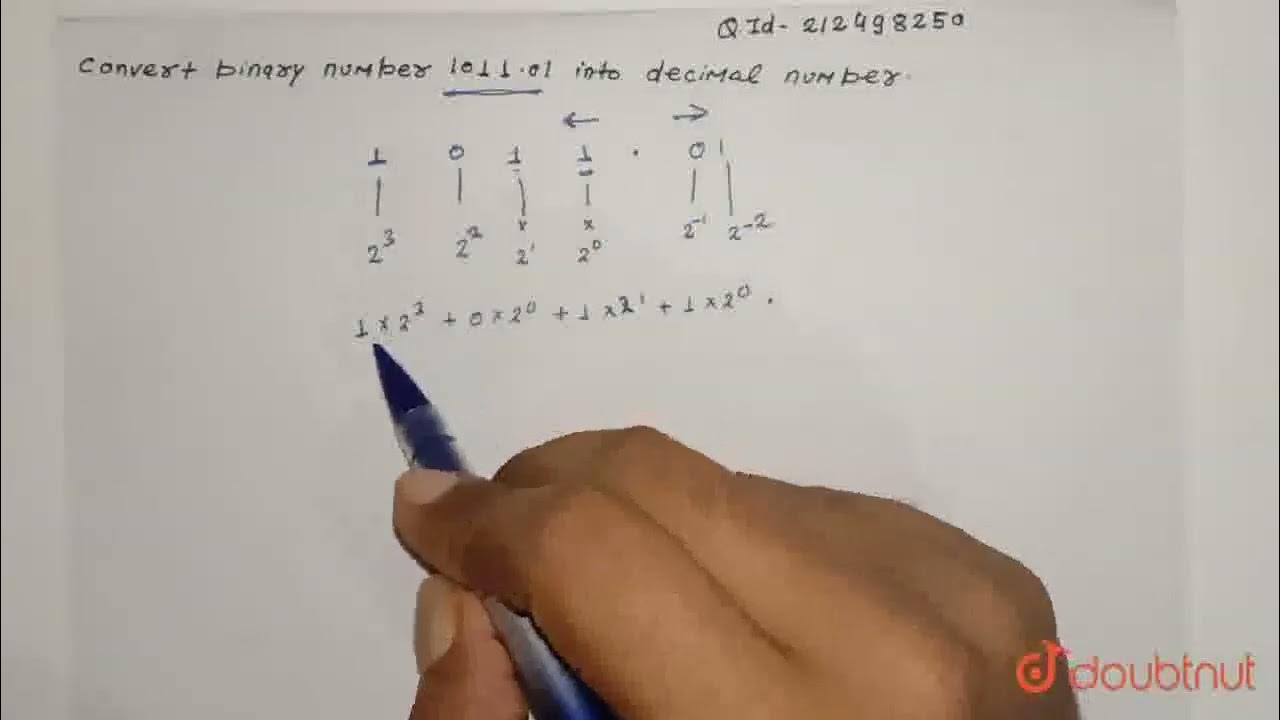 Q Id - 212498250
Convert binary number 1011.01 into decimal number.
← →
1 0 1 1 . 0 1
x x
2³ 2² 2¹ 2⁰ 2⁻¹ 2⁻²
1 × 2³ + 0 × 2⁰ + 1 × 2¹ + 1 × 2⁰ .
doubtnut